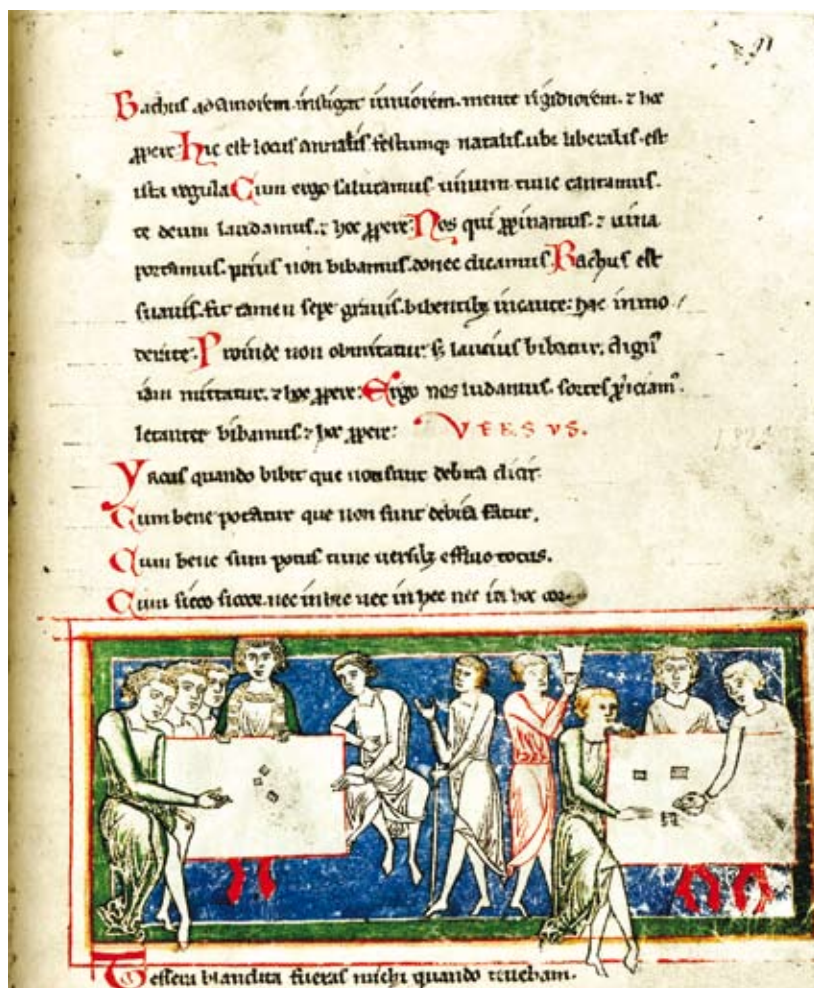 91
Bachus ad amorem. instigat iuniorem. mente rigidiorem. ⁊ hoc
ꝓpere. Hic est locus annalis festumq; natalis. ubi liberalis. est
ista regula Cum ergo salutamus. uinum tunc cantamus.
te deum laudamus. ⁊ hoc ꝓpere. Nos qui ꝓpinamus. ⁊ uina
portamus. prius non bibamus. donec dicamus. Bachus est
suauis. fit tamen sepe grauis. bibentib; incaute: hac inmo
derate. Proinde non obmittatur. s; laucius bibatur. dignū
iam mittatur. ⁊ hoc ꝓpere: Ergo nos ludamus. sortes ꝓiciamꝰ.
letanter bibamus: ⁊ hoc ꝓpere: VERSVS.
Yrcus quando bibit que non sunt debita dicit.
Cum bene potatur que non sunt debita fatur.
Cum bene sum potus tunc uersib; effluo totus.
Cum sicco sicce. nec in hic nec in hec nec in hoc cor
Tessera blandita fueras michi quando tenebam.